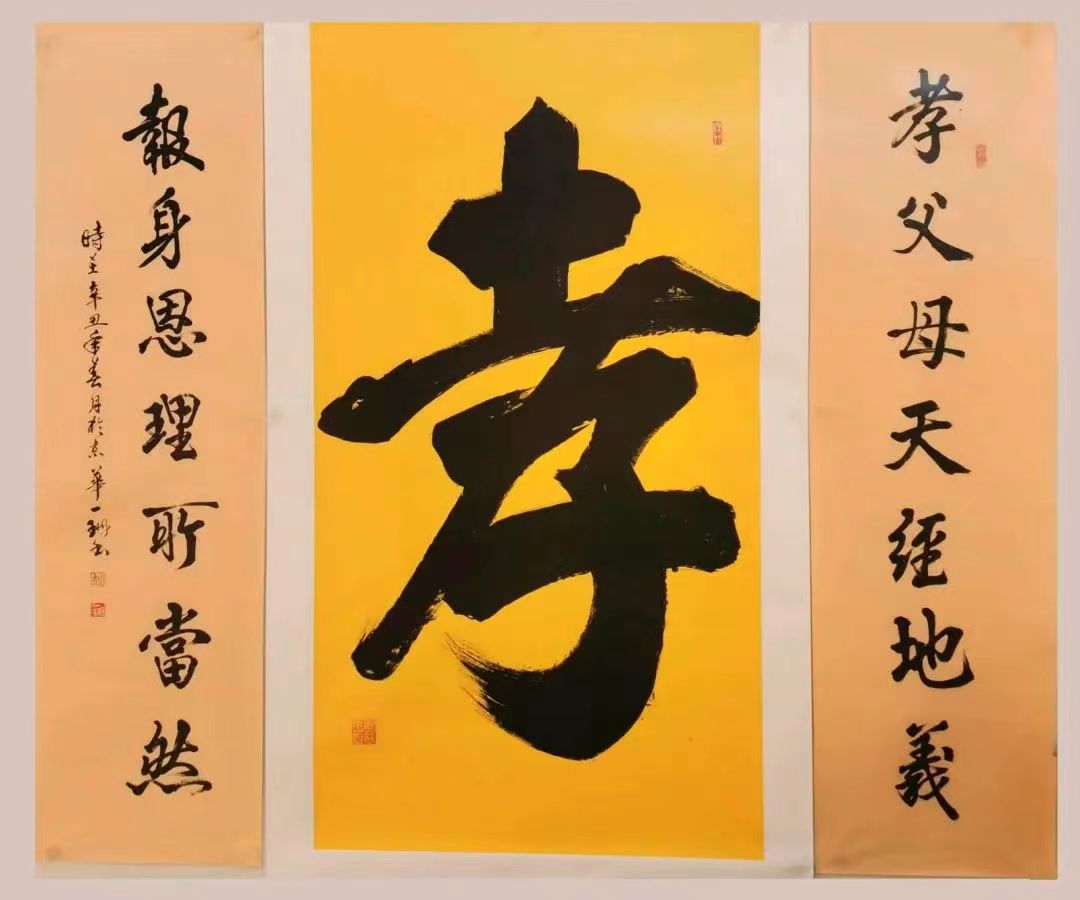 孝父母天經地義
孝
報身恩理所當然
時在辛丑年春月於京華一